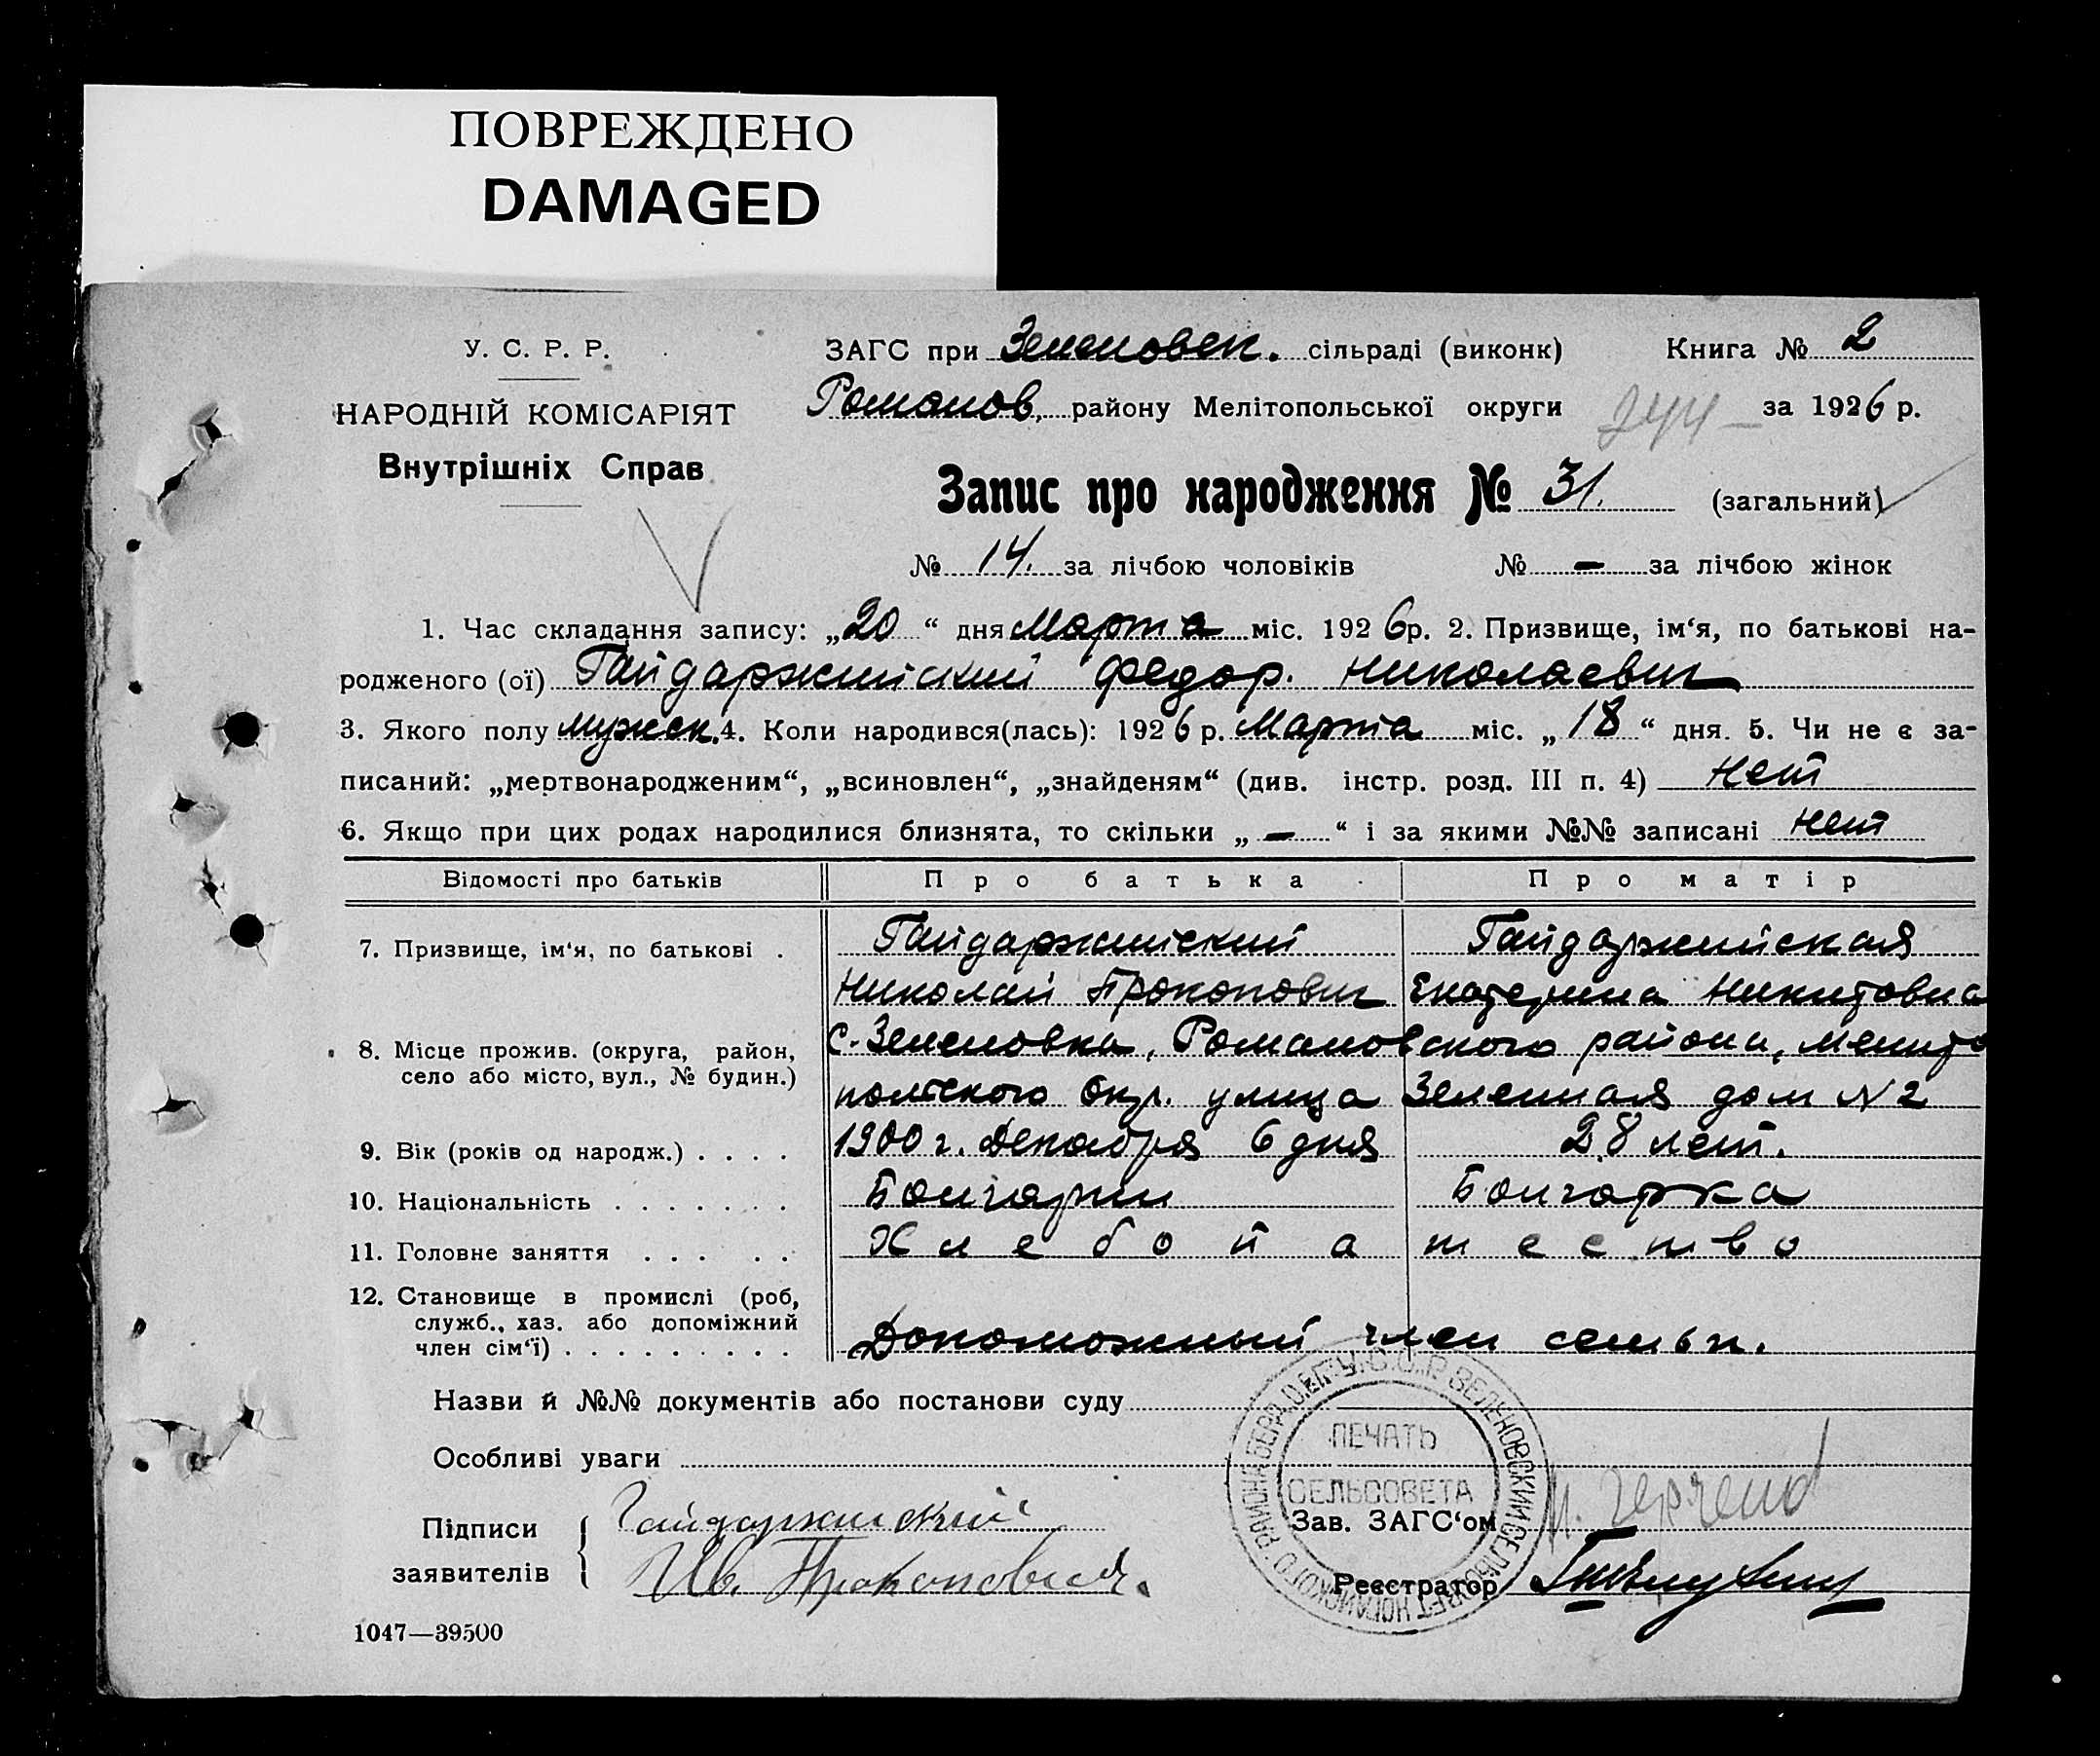 ПОВРЕЖДЕНО
DAMAGED
У. С. Р. Р.
НАРОДНІЙ КОМІСАРІЯТ
Внутрішніх Справ
ЗАГС при Зеленовск. сільраді (виконк) Книга № 2
Романов. району Мелітопольської округи 244 за 1926 р.
Запис про народження № 31. (загальний)
№ 14. за лічбою чоловіків № – за лічбою жінок
1. Час складання запису: „20“ дня Марта міс. 1926 р. 2. Призвище, ім‘я, по батькові на-
родженого (ої) Гайдаржийский Федор. Николаевич
3. Якого полу мужск. 4. Коли народився(лась): 1926 р. Марта міс. „18“ дня. 5. Чи не є за-
писаний: „мертвонародженим“, „всиновлен“, „знайденям“ (див. інстр. розд. III п. 4) Нет
6. Якщо при цих родах народилися близнята, то скільки „–“ і за якими №№ записані Нет
Відомості про батьків Про батька Про матір
7. Призвище, ім‘я, по батькові . Гайдаржийский Гайдаржийская
Николай Прокопович Екатерина Никитовна
8. Місце прожив. (округа, район, село або місто, вул., № будин.) с. Зеленовка, Романовского района, Мелито
польского Окр. улица Зеленная дом N 2
9. Вік (років од народж.) . . . . 1900 г. Декабря 6 дня 28 лет.
10. Національність . . . . . . . Болгарин Болгарка
11. Головне заняття . . . . . Хлебопашество
12. Становище в промислі (роб,
служб., хаз. або допоміжний
член сім‘ї) . . . . . . . . . Допоможный член семьи.
Назви й №№ документів або постанови суду
Особливі уваги
ПЕЧАТЬ
СЕЛЬСОВЕТА
ЗЕЛЕНОВСКИЙ СЕЛЬСОВЕТ НОГАЙСКОГО РАЙОНА БЕРД. ОКР. У.С.С.Р.
Підписи Гайдаржийский Зав. ЗАГС‘ом
заявителів Ив. Прокопович. Реєстратор
1047—39500